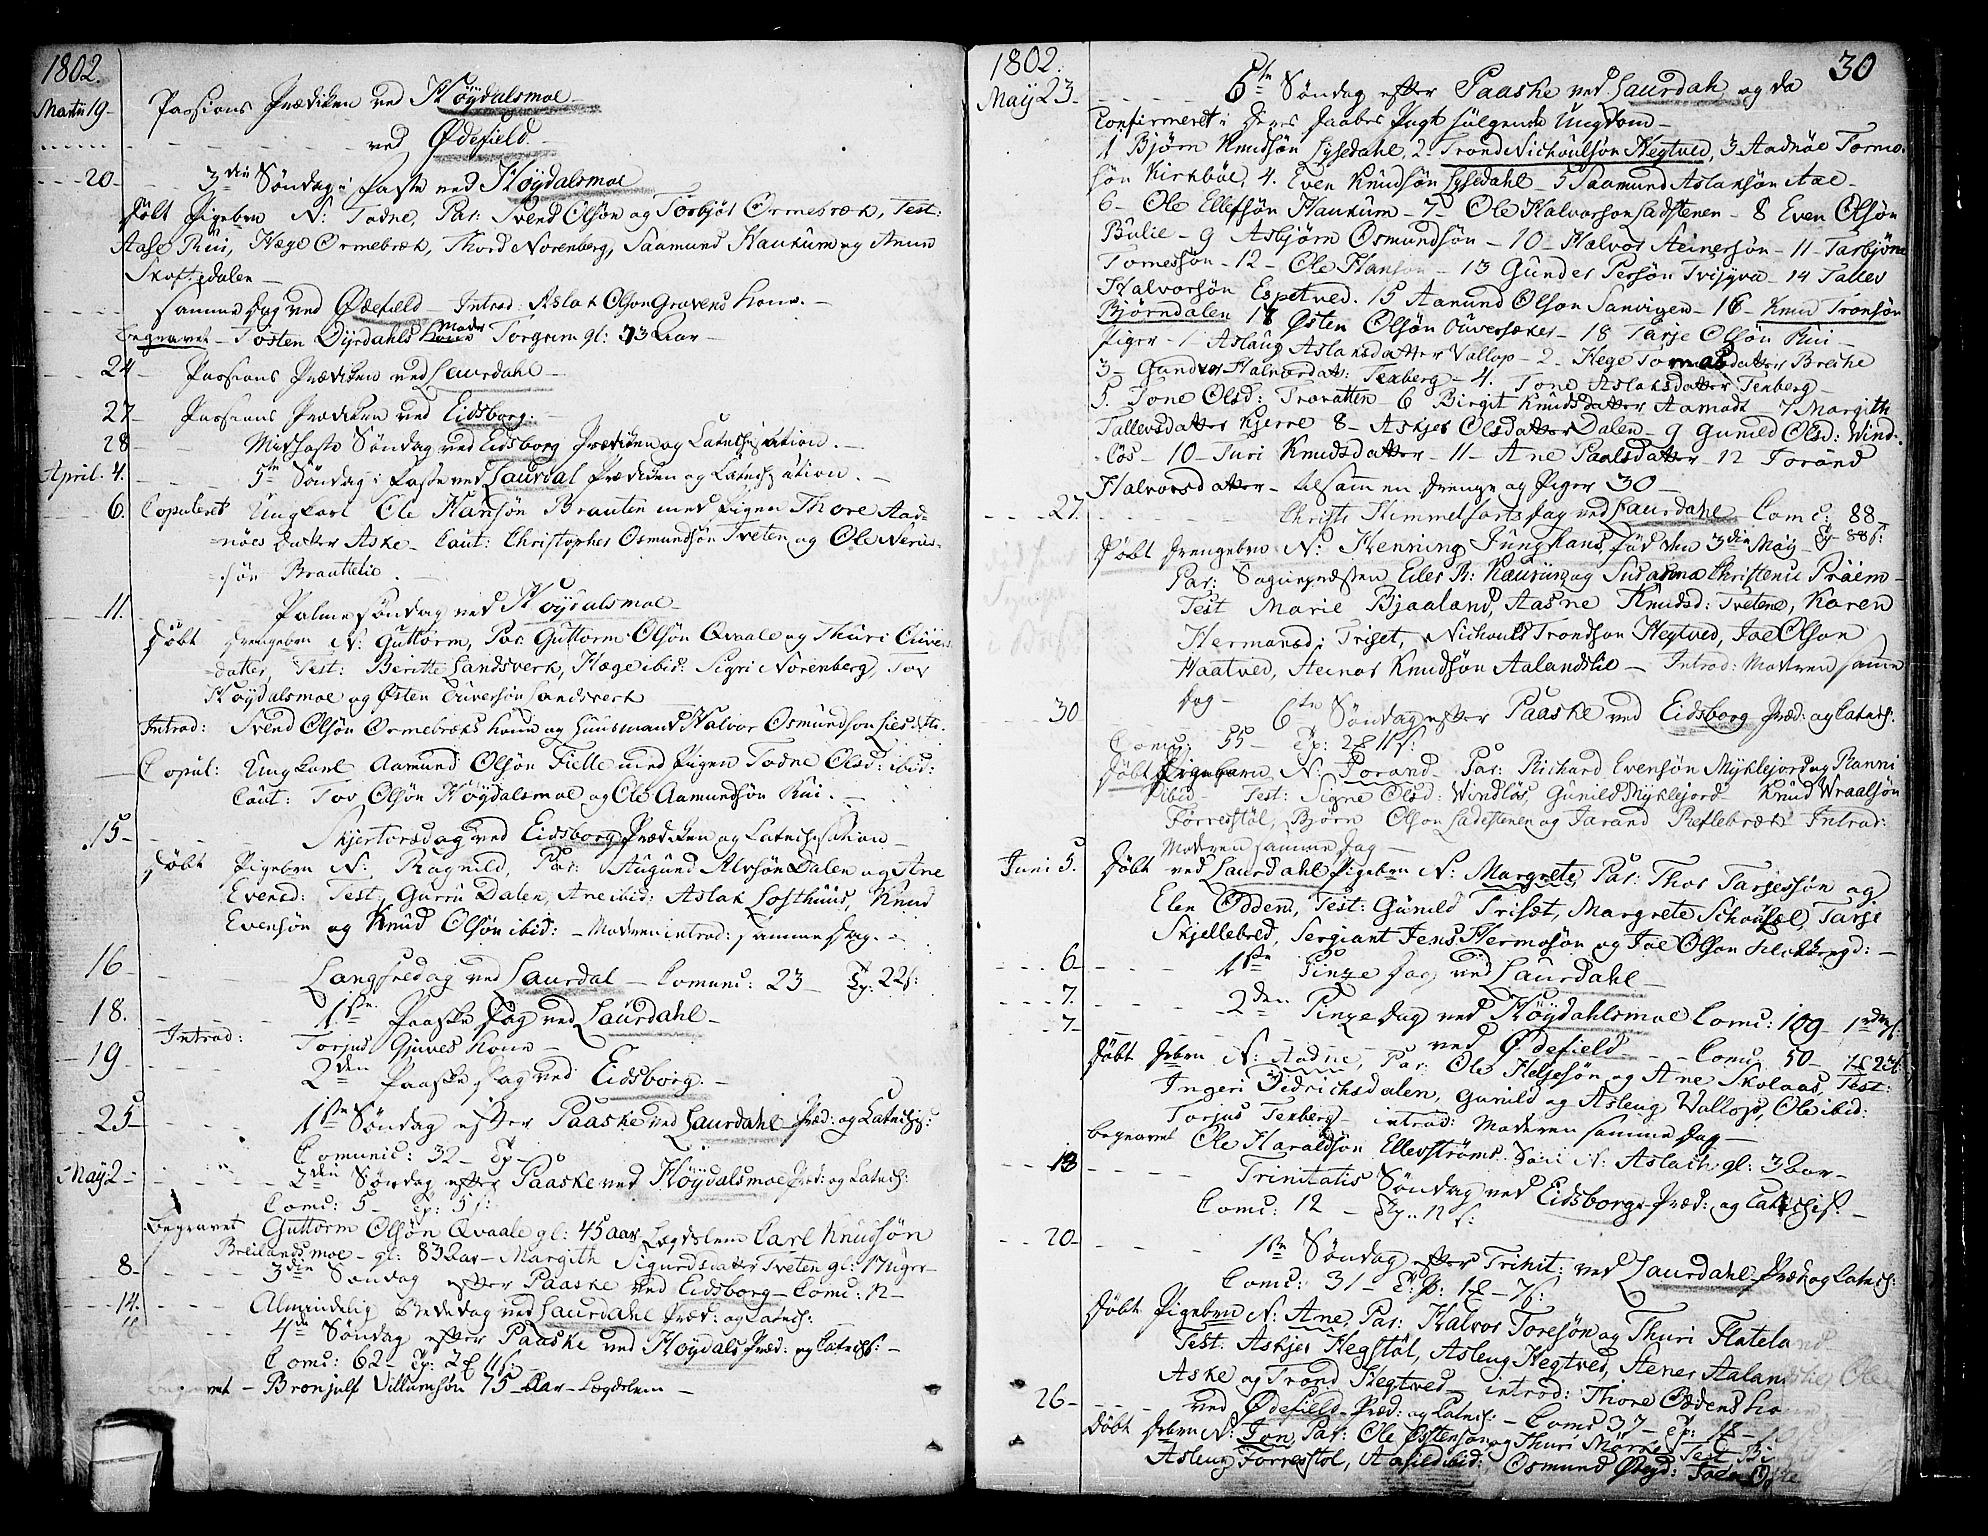 1802.
Martii 19. Passions Prædiken ved Høydalsmoe
ved Ødefield.
20 3die Søndag i Faste ved Høydalsmoe
Døbt Pigebrn N: Todne, Par: Svend Olsøn og Torbjør Ormebræk, Test:
Aase Rui, Hæge Ormebræk, Thord Norenberg, Saamund Haukum og Anun
dalen
samme Dag ved Ødefield Introd: Aslak Olson Gravens Kone.
begravet Tosten Dÿrdahls Moder Torgrim gl: 73 Aar
24 Passions Prædiken ved Laurdahl
27 Passions Prædiken ved Eidsborg.
28 Midfaste Søndag ved Eidsborg Prædiken og Catechisation.
April. 4. 5te Søndag i Faste ved Laurdal Prædiken og Catechisation.
6. Copuleret Ungkarl Ole Hansøn Brauten med Pigen Thore Aad-
nöes datter Aske Caut: Christopher Osmundsøn Tveten og Ole
søn Brautelie.
11. Palmesøndag ved Høydalsmoe
Døbt Drengebrn N: Guttorm, Par: Guttorm Olsøn Qvaale og Thuri Ouvers-
datter, Test: Beritte Landsverk, Hæge ibid: Sigri Norenberg, Tov
Høydalsmoe og Østen Ouversøn Landsverk
Introd: Svend Olsøn Ormebræks Kone og Huusmand Halvor Osmundson
Copul: Ungkarl Aamund Olsøn Fielle med Pigen Todne Olsd: ibid:
Caut: Tov Olsøn Høydalsmoe og Ole Aamundsøn Rui.
15 Skjertorsdag ved Eidsborg Prædiken og Catechisation
Døbt Pigebrn N: Ragnild, Par: Augund Alvsøn Dalen og Ane
Evensd: Test, Gurru Dalen, Ane ibid: Aslak Lofthuus, Knud
Evensøn og Knud Olsøn ibid: Moderen introd: samme Dag.
16 Langfredag ved Laurdal Comunic: 23 Ep: 22 s:
18. 1ste Paaske Dag ved Laurdahl
Introd: Torjus Gjuves Kone
19 2den Paaske Dag ved Eidsborg.
25 1ste Søndag efter Paaske ved Laurdahl Præd: og Catechis:
Comunic: 32 Ep
May 2 2den Søndag efter Paaske ved Høydalsmoe Præd: og Catech:
Comu: 5 Ep: 5 s:
Begravet Guttorm Olsøn Qvaale gl: 45 aar, Lægdslem Carl Knudsøn
Breilandsmoe gl: 83 Aar Margith Sigurdsdatter Tveten gl: 17 Uger
8 3die Søndag efter Paaske ved Eidsborg Comu: 12
14. Almindelig Bededag ved Laurdahl Præd: og Catech:
16 4de Søndag efter Paaske ved Høydals Præd: og Catechs:
Comu: 62 Ep:
Begravet Bronjulf Villumsøn 75 Aar Lægdslem
1802. 30
May 23. 5te Søndag efter Paaske ved Laurdah og da
Confirmeret i Deres Daabes Pagt følgende Ungdom
1 Bjørn Knudsøn Lysedahl, 2. Trond Nichoulsøn Hegtved, 3 Aadnöe Tormo-
søn Kirkböe, 4. Even Knudsøn Lysedahl 5 Saamund Aslaksøn
6 Ole Ellefsøn Haukum 7 Ole Halvorson Ladstenen 8 Even Olsøn
Bulie 9 Asbjørn Osmundsøn 10 Halvor Steinersøn 11 Tarbjørn
Tornessøn 12 Ole Hansøn 13 Gunder Persøn 14 Tallev
Halvorsøn Espetved. 15 Aamund Olson Sanvigen 16 Knud Tronsøn
Bjørndalen 17 Østen Olsøn 18 Tarje Olsøn Rui
Piger 1 Aslaug Aslaksdatter Vallop 2 Hege Tormosdatter Breche
3 Halvorsdat: Texberg 4. Tone Aslaksdatter Texberg
5. Tone Olsd: Trovatten 6 Birgit Knudsdatter Aamodt 7 Margith
Tallevsdatter Kjerre 8 Askjer Olsdatter Dalen 9 Gunild Olsd: Wind-
løs 10 Turi Knudsdatter 11 Ane Paalsdatter 12 Torand
Halvorsdatter tilsammen Drenge og Piger 30
27. Christi Himmelfarts Dag ved Laurdahl Comu: 88
Døbt Drengebrn N: Henning Junghans, född den 3die May Ep 88 s:
Par: Sognepræsten Eiler R: Kauring og Susanna Christence Präem
Test Marie Bjaaland, Aasne Knudsd: Tvetene, Karen
Hermansd: Triset, Nichould Trondson Hegtved, Joe Olson
Haatved, Steinar Knudsøn Aalandslie Introd: Moderen samme
Dag
30 6te Søndag efter Paaske ved Eidsborg Præd: og Catech:
Comu: 55 Ep:
Døbt Pigebarn N: Torand Par: Richard Evensøn Mÿklejord og Ranni
ibid Test: Signe Olsd: Windløs, Gunild Mÿklejord Knud Wraalsøn
Forrestöl, Bjørn Olson Ladestenen og Jarand Introd:
Moderen samme Dag
Juni 5. Døbt ved Laurdahl Pigebrn N: Margrete, Par: Thor Tarjessøn og
Elen Odden, Test: Gunild Trisæt, Margrete, Tarje
Skjellebred, Sergiant Jens Hermosøn og Joe Olson
6 1ste Pinze Dag ved Laurdahl
7. 2den Pinze Dag ved Høydahlsmoe Comu: 109
7 ved Ødefield Comu 50
Døbt Drbrn N: Aadne, Par: Ole Helgesøn og Ane Skolaas, Test:
Ingeri Didrichsdalen, Gunild og Asleug Vallop, Ole ibid:
Torjus Texberg introd: Moderen samme Dag
begravet Ole Haraldsøn Ellevströms Søn N: Aslach gl: 3 Aar
13 Trinitatis Søndag ved Eidsborg Præd: og Catechis:
Comu: 12 Ep: 12 s:
20 1ste Søndag efter Trinit: ved Laurdahl Præd og Catech:
Comu: 31
Døbt Pigebrn N: Ane, Par: Halvor Toresøn og Thuri Flateland
Test: Askjer Hegstöl, Asleug Hegtved, Stener Aaland
Aske og Trond Hegtved introd: Thore
26 ved Ødefield Præd: og Catech: Comu 37
Døbt Drbrn N: Jon, Par: Ole Østensøn og Thuri Test
Asleug Forrestöl, ibid: Osmund